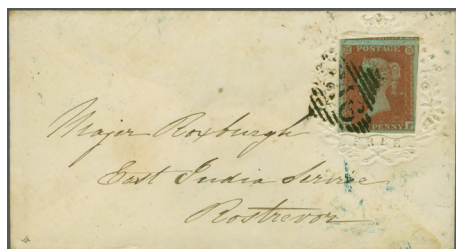 POSTAGE
PENNY
FREE
Major Roxburgh
East India Service
Rostrevor